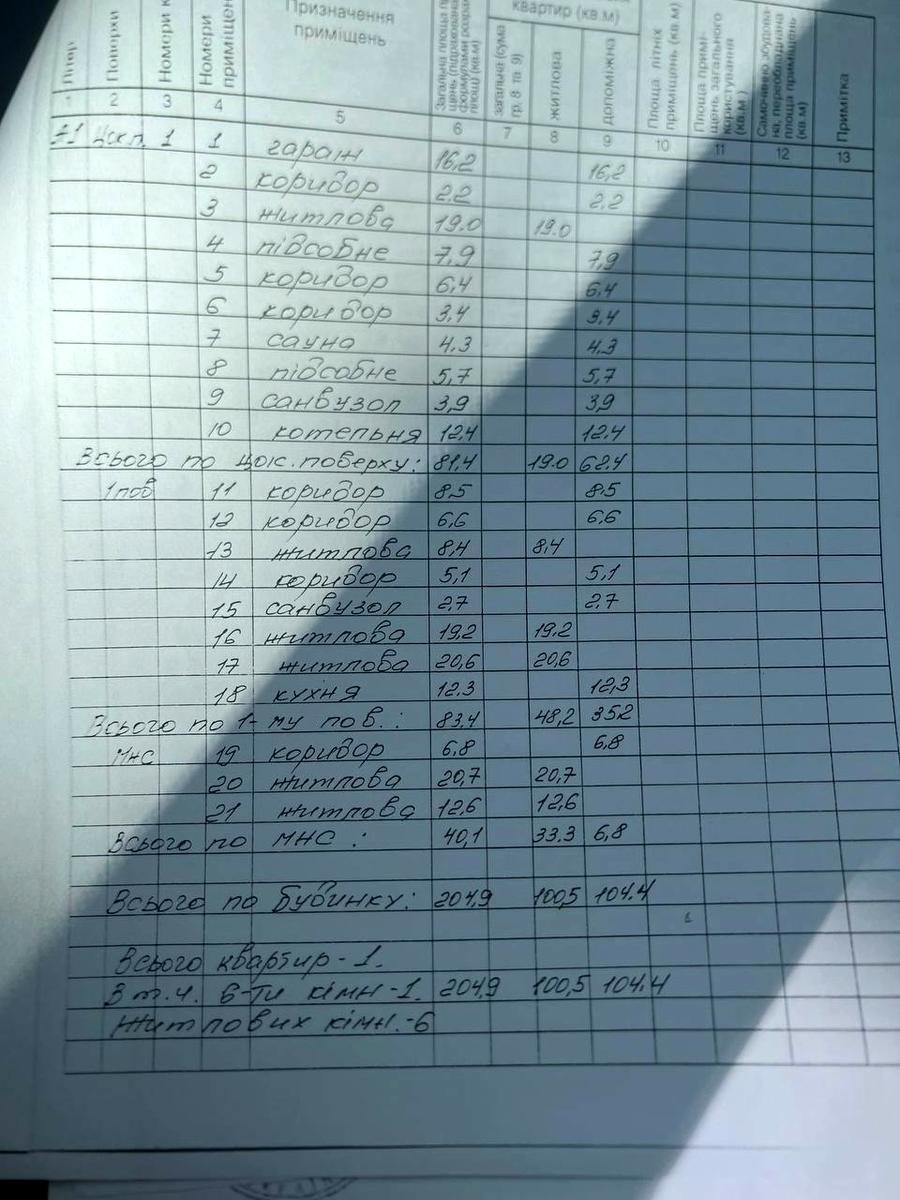 Літер | Поверхи | Номери к | Номери приміщен | Призначення приміщень | Загальна площа п | загальна (сума гр. 8 та 9) | житлова | допоміжна | Площа літніх приміщень (кв.м) | Площа примі-щень загального користування (кв.м) | Самочинно збудова-на, переобладнана площа приміщень (кв.м) | Примітка
квартир (кв.м)
1 2 3 4 5 6 7 8 9 10 11 12 13
Цок.п. 1 1 гараж 16,2 16,2
2 коридор 2.2 2.2
3 житлова 19.0 19.0
4 підсобне 7,9 7,9
5 коридор 6,4 6.4
6 коридор 3,4 3,4
7 сауна 4.3 4.3
8 підсобне 5,7 5,7
9 санвузол 3,9 3,9
10 котельня 12.4 12.4
Всього по цок. поверху: 81,4 19.0 62.4
1 пов 11 коридор 8.5 8.5
12 коридор 6,6 6.6
13 житлова 8,4 8,4
14 коридор 5,1 5,1
15 санвузол 2,7 2.7
16 житлова 19,2 19.2
17 житлова 20,6 20,6
18 кухня 12.3 12,3
Всього по 1-му пов.: 83.4 48,2 35.2
МНС 19 коридор 6.8 6,8
20 житлова 20,7 20,7
21 житлова 12,6 12,6
Всього по МНС: 40,1 33.3 6,8
Всього по будинку: 204,9 100,5 104.4
Всього квартир - 1.
В т.ч. 6-ти кімн - 1. 204,9 100,5 104.4
Житлових кімн. - 6